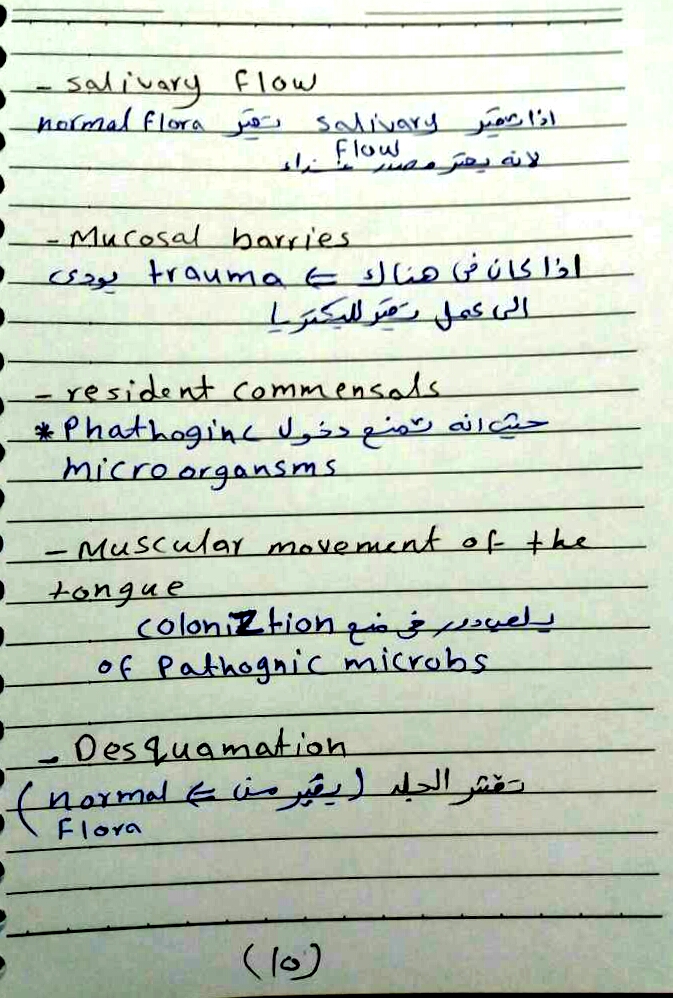 - salivary flow
اذا تغير salivary تغير normal flora
flow
لانه يعتبر مصدر غذاء
- Mucosal barries
اذا كان في هناك ← trauma يودي
الى عمل تغير للبكتريا
- resident commensals
* حيث انه تمنع دخول Phathoginc
microorgansms
- Muscular movement of the
tongue
يلعب دور في منع coloniztion
of Pathognic microbs
- Desquamation
تقشر الجلد (يغير من ← normal
flora)
(10)